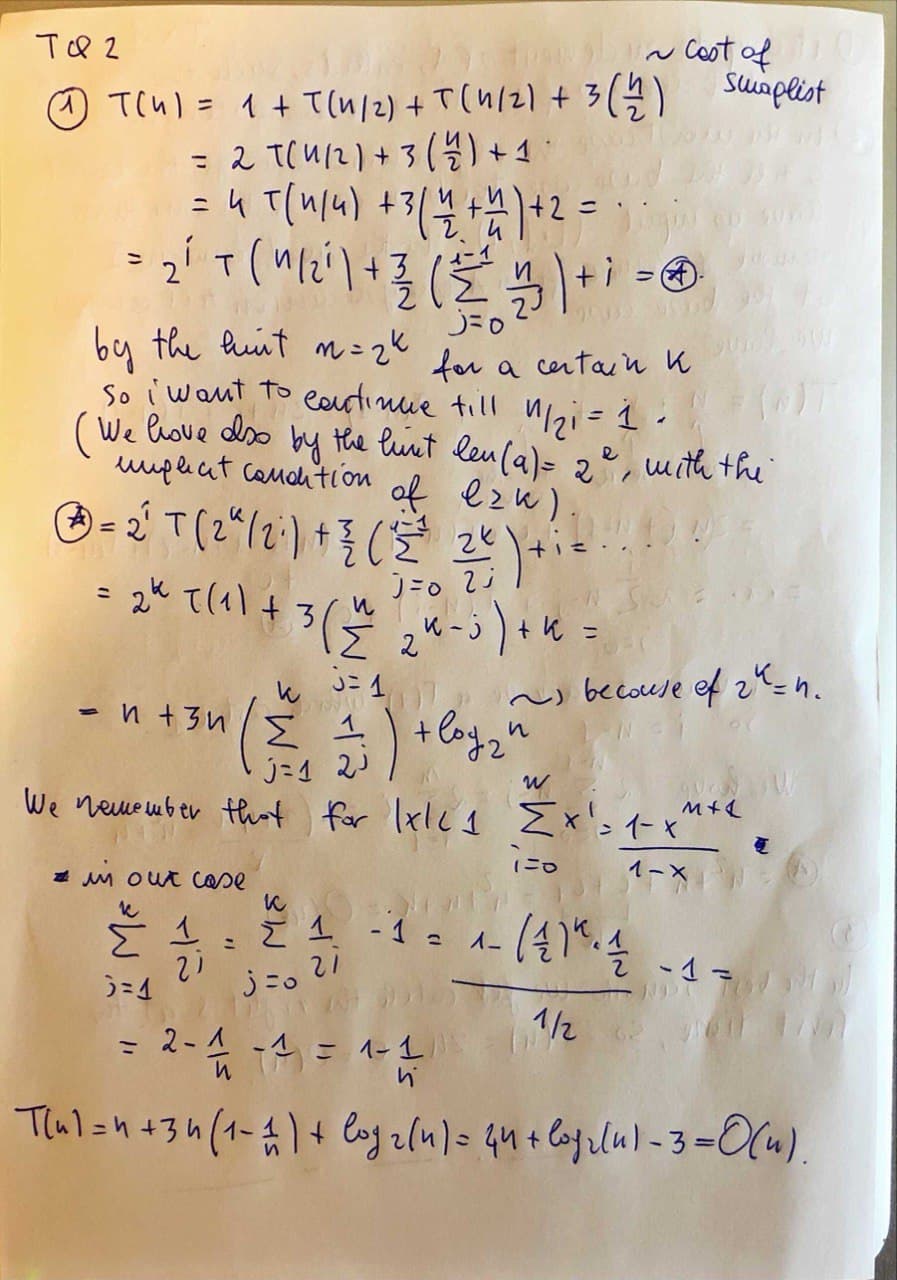 TQ 2
~ cost of
swaplist
① T(n) = 1 + T(n/2) + T(n/2) + 3(n/2)
= 2 T(n/2) + 3(n/2) + 1
= 4 T(n/4) + 3(n/2 + n/4) + 2 = ...
= 2^i T(n/2^i) + 3/2 (∑_{j=0}^{i-1} n/2^j) + i = ⍟.
by the hint n = 2^k for a certain k
so i want to continue till n/2^i = 1.
(We have also by the hint len(a) = 2^l, with the
implicit condition of l ≥ k).
⍟ = 2^i T(2^k/2^i) + 3/2 (∑_{j=0}^{i-1} 2^k/2^j) + i = ....
= 2^k T(1) + 3(∑_{j=1}^{k} 2^{k-j}) + k =
= n + 3n (∑_{j=1}^{k} 1/2^j) + log₂ n ~> because of 2^k = n.
We remember that for |x| < 1 ∑_{i=0}^{n} x^i = (1-x^{n+1})/(1-x)
in our case
∑_{j=1}^{k} 1/2^j = ∑_{j=0}^{k} 1/2^j - 1 = (1-(1/2)^k · 1/2)/(1/2) - 1 =
= 2 - 1/n - 1 = 1 - 1/n
T(n) = n + 3n(1 - 1/n) + log₂(n) = 4n + log₂(n) - 3 = O(n).